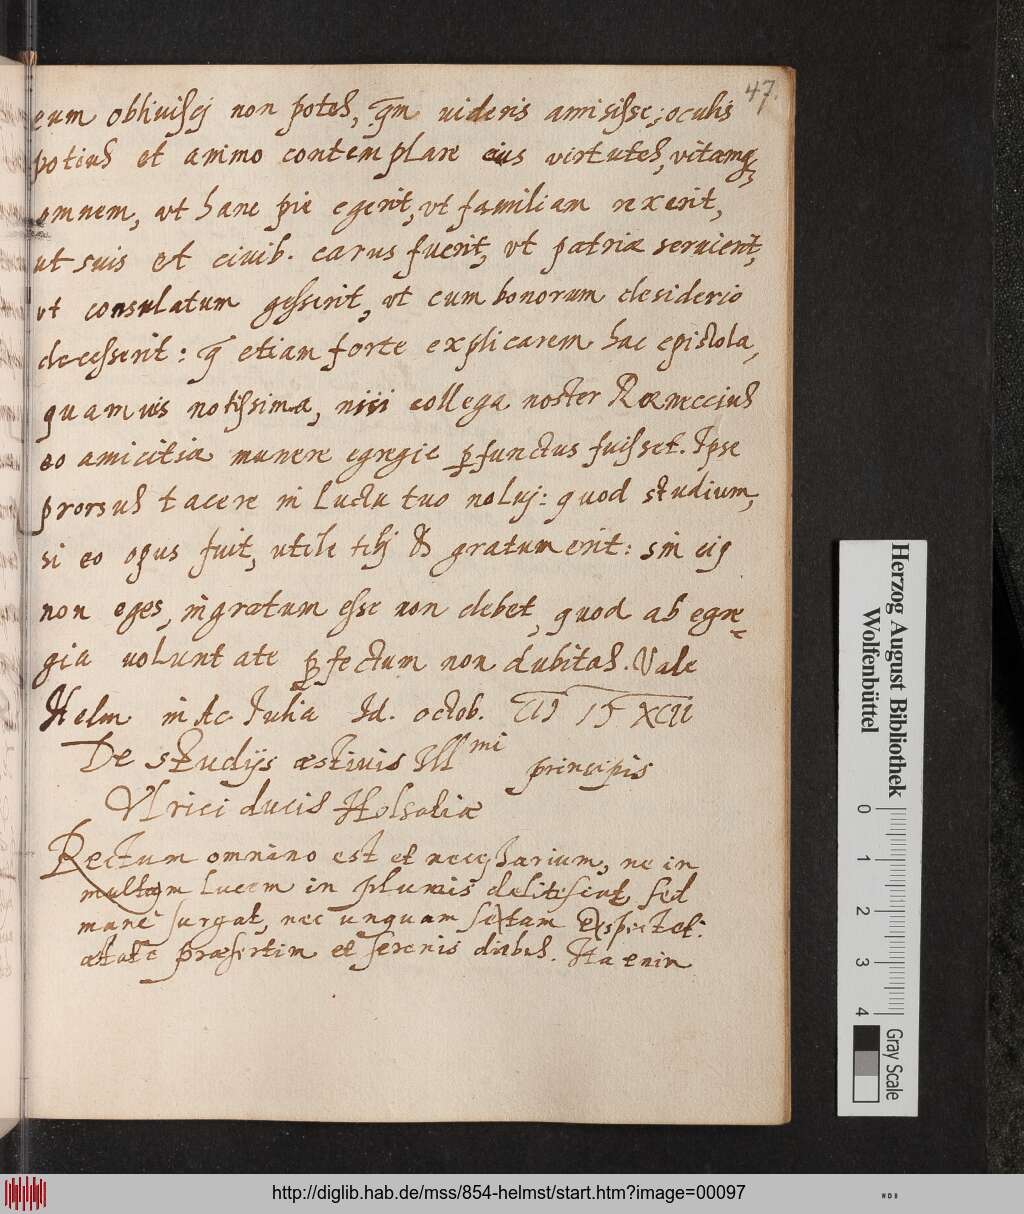 47.
eum obliuiscj non potes, qm uideris amisisse; oculis
potius et animo contemplare eius virtutes, vitamq;
omnem, vt hanc pie egerit, vt familiam rexerit,
ut suis et ciuib. carus fuerit, vt patriæ seruierit,
vt consulatum gesserit, vt cum bonorum desiderio
decesserit: q etiam forte explicarem hac epistola,
quamuis notissima, nisi collega noster Reineccius
eo amicitiæ munere egregie pfunctus fuisset. Ipse
prorsus tacere in luctu tuo noluj: quod studium,
si eo opus fuit, utile tibj & gratum erit: sin eis
non eges, ingratum esse non debet, quod ab egre-
gia voluntate pfectum non dubitas. Vale
Helm in Ac. Iulia Id. octob.
De studijs æstiuis Illmi principis
Vlrici ducis Holsatiæ
Rectum omnino est et necessarium, ne in
multam lucem in plumis delitescat, sed
mane surgat, nec unquam sextam exspectet:
æstate præsertim et serenis diebus. Ita enim
Herzog August Bibliothek
Wolfenbüttel
0 1 2 3 4
Gray Scale
http://diglib.hab.de/mss/854-helmst/start.htm?image=00097